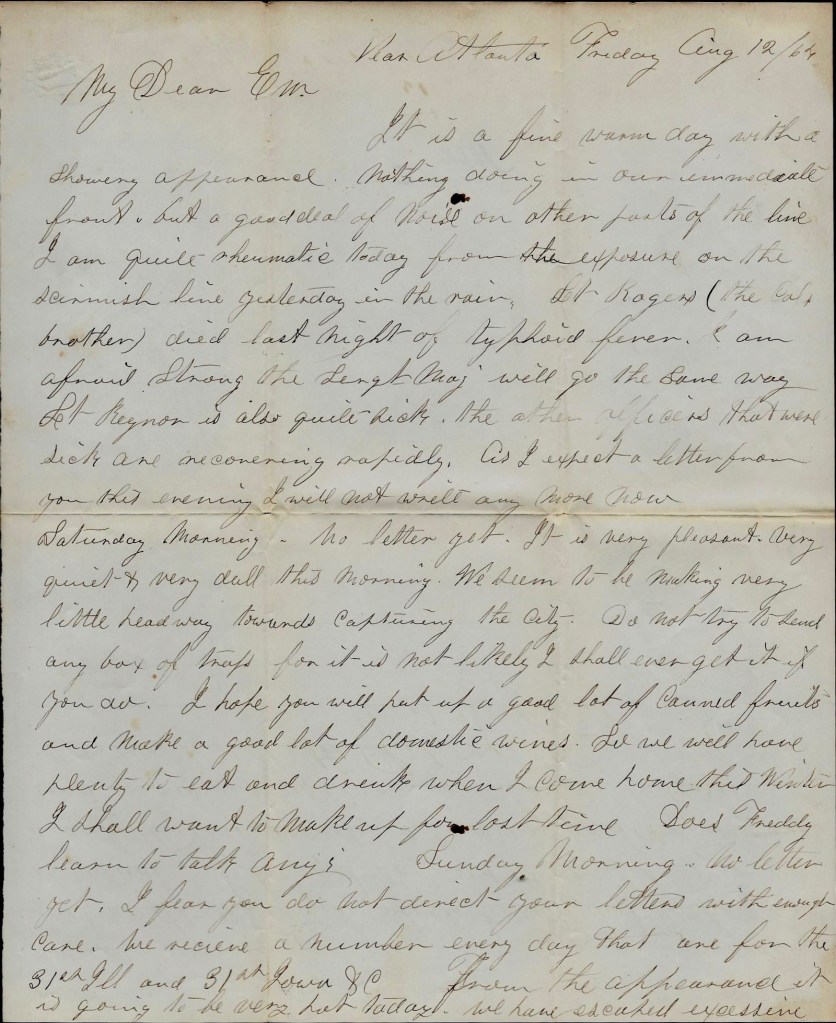 Near Atlanta Friday Aug 12/64
My Dear Em.
It is a fine warm day with a
showery appearance. Nothing doing in our immediate
front. but a good deal of noise on other parts of the line
I am quite rheumatic today from the exposure on the
scirmish line yesterday in the rain, Lt Rogers (the Cols
brother) died last night of typhoid fever. I am
afraid Strong the Sergt Maj will go the same way
Lt Reynor is also quite sick. the other officers that were
sick are recovering rapidly. As I expect a letter from
you this evening I will not write any more now
Saturday Morning. No letter yet. It is very pleasant. very
quiet & very dull this morning. We seem to be making very
little headway towards capturing the city. Do not try to send
any box of traps for it is not likely I shall ever get it if
you do. I hope you will put up a good lot of canned fruits
and make a good lot of domestic wines. So we will have
plenty to eat and drink when I come home this Winter
I shall want to make up for lost time Does Freddy
learn to talk any? Sunday Morning. No letter
yet. I fear you do not direct your letters with enough
care. We recieve a number every day that are for the
31st Ill and 31st Iowa &C From the appearance it
is going to be very hot today. We have escaped excessive